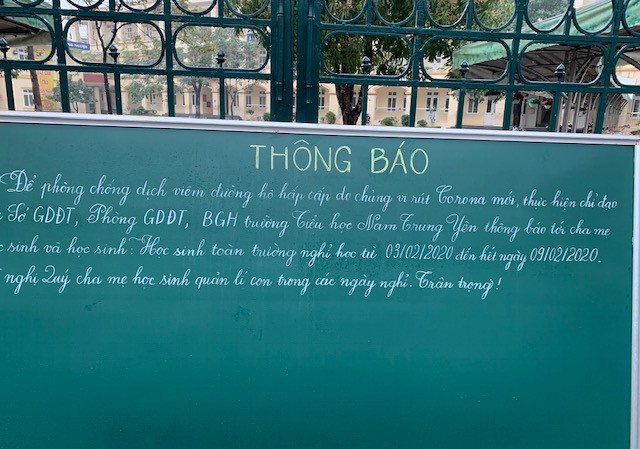 THÔNG BÁO
Để phòng chống dịch viêm đường hô hấp cấp do chủng vi rút Corona mới, thực hiện chỉ đạo
Sở GDĐT, Phòng GDĐT, BGH trường Tiểu học Nam Trung Yên thông báo tới cha mẹ
sinh và học sinh: Học sinh toàn trường nghỉ học từ 03/02/2020 đến hết ngày 09/02/2020.
nghị Quý cha mẹ học sinh quản lí con trong các ngày nghỉ. Trân trọng!